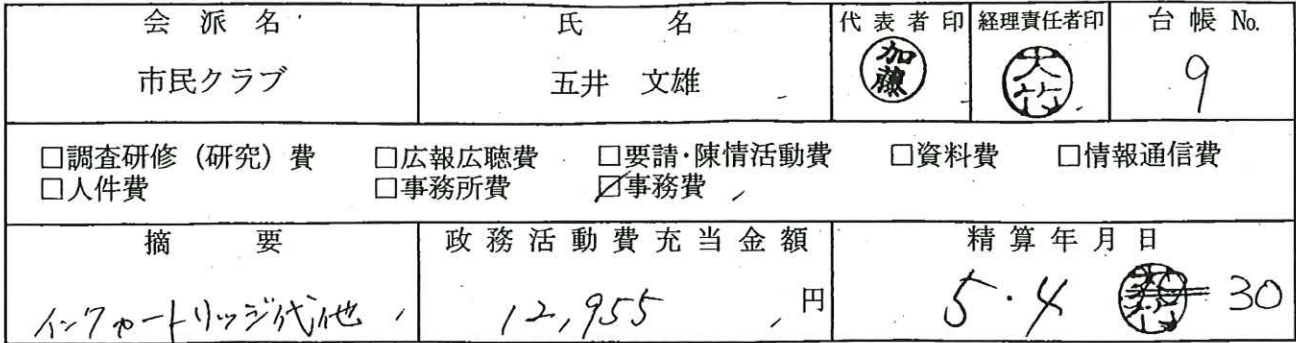 会派名 氏名 代表者印 経理責任者印 台帳 No.
市民クラブ 五井 文雄 加藤 大竹 9
□調査研修（研究）費 □広報広聴費 □要請・陳情活動費 □資料費 □情報通信費
□人件費 □事務所費 ☑事務費
摘要 政務活動費充当金額 精算年月日
インクカートリッジ代他 12,955 円 5・4 30